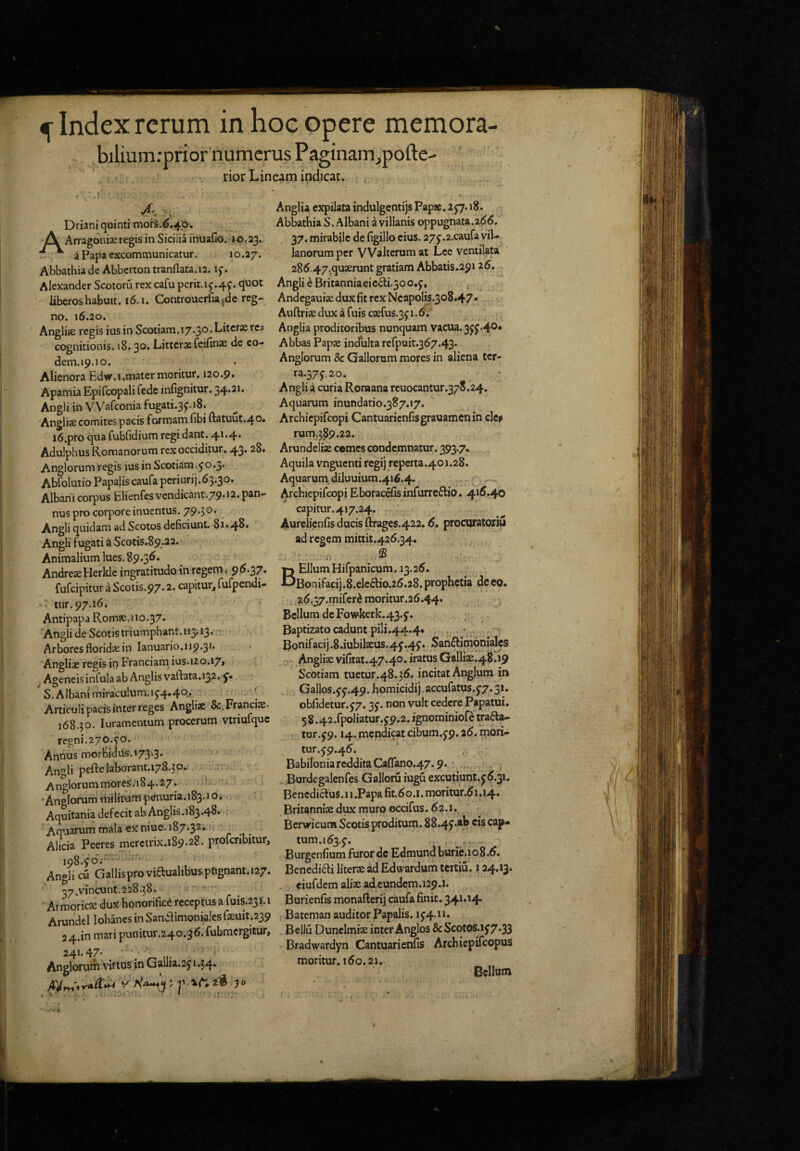 ¶ Index rerum in hoc opere memora-
bilium: prior numerus Paginam, poste-
rior Lineam indicat.
A.
ADriani quinti mors. 6. 40.
Arragoniæ regis in Sicilia inuasio. 10. 23.
à Papa excommunicatur. 10. 27.
Abbathia de Abberton tranſlata. 12. 15.
Alexander Scotorũ rex caſu perit. 15. 45. quot
liberos habuit. 16. 1. Controuerſia de reg-
no. 16. 20.
Angliæ regis ius in Scotiam. 17. 30. Literæ re-
cognitionis. 18. 30. Litteræ ſeiſinæ de eo-
dem. 19. 10.
Alienora Edw. 1. mater moritur. 120. 9.
Apamia Epiſcopali ſede inſignitur. 34. 21.
Angli in VVaſconia fugati. 35. 18.
Angliæ comites pacis formam ſibi ſtatuũt. 40.
16. pro qua ſubſidium regi dant. 41. 4.
Adulphus Romanorum rex occiditur. 43. 28.
Anglorum regis ius in Scotiam. 50. 3.
Abſolutio Papalis cauſa periurij. 63. 30.
Albani corpus Elienſes vendicant. 79. 12. pan-
nus pro corpore inuentus. 79. 30.
Angli quidam ad Scotos deficiunt. 81. 48.
Angli fugati à Scotis. 89. 22.
Animalium lues. 89. 36.
Andreæ Herkle ingratitudo in regem. 96. 37.
ſuſcipitur à Scotis. 97. 2. capitur, ſuſpendi-
tur. 97. 16.
Antipapa Romæ. 110. 37.
Angli de Scotis triumphant. 113. 13.
Arbores floridæ in Ianuario. 119. 31.
Angliæ regis in Franciam ius. 120. 17,
Ageneis inſula ab Anglis vaſtata. 132. 5.
S. Albani miraculum. 154. 40.
Articuli pacis inter reges Angliæ & Franciæ.
168. 30. Iuramentum procerum vtriuſque
regni. 270. 50.
Annus morbidus. 173. 3.
Angli peſte laborant. 178. 30.
Anglorum mores. 184. 27.
Anglorum militum penuria. 183. 10.
Aquitania defecit ab Anglis. 183. 48.
Aquarum mala ex niue. 187. 32.
Alicia Peeres meretrix. 189. 28. proſcribitur,
198. 50.
Angli cũ Gallis pro victualibus pugnant. 127.
37. vincunt. 228. 38.
Armoricæ dux honorificè receptus a ſuis. 231. 1
Arundel Iohãnes in Sanctimoniales ſæuit. 239
24. in mari punitur. 240. 36. ſubmergitur,
241. 47.
Anglorum virtus in Gallia. 251. 34.
Anglia expilata indulgentijs Papæ. 257. 18.
Abbathia S. Albani à villanis oppugnata. 266.
37. mirabile de ſigillo eius. 275. 2. cauſa vil-
lanorum per VValterum at Lee ventilata
286. 47. quærunt gratiam Abbatis. 291 26.
Angli è Britannia eiecti. 300. 5,
Andegauiæ dux fit rex Neapolis. 308. 47.
Auſtriæ dux à ſuis cæſus. 351. 6.
Anglia proditoribus nunquam vacua. 355. 40.
Abbas Papæ indulta reſpuit. 367. 43.
Anglorum & Gallorum mores in aliena ter-
ra. 375. 20.
Angli à curia Romana reuocantur. 378. 24.
Aquarum inundatio. 387. 17.
Archiepiſcopi Cantuarienſis grauamen in cle-
rum. 389. 22.
Arundeliæ comes condemnatur. 393. 7.
Aquila vnguenti regij reperta. 401. 28.
Aquarum diluuium. 416. 4.
Archiepiſcopi Eboracẽſis inſurrectio. 416. 40
capitur. 417. 24.
Aurelienſis ducis ſtrages. 422. 6. procuratoriũ
ad regem mittit. 426. 34.
B
BEllum Hiſpanicum. 13. 26.
Bonifacij. 8. electio. 26. 28. prophetia de eo.
26. 37. miſerè moritur. 26. 44.
Bellum de Fowkerk. 43. 5.
Baptizato cadunt pili. 44. 4.
Bonifacij. 8. iubilæus. 45. 45. Sanctimoniales
Angliæ viſitat. 47. 40. iratus Galliæ. 48. 19
Scotiam tuetur. 48. 36. incitat Anglum in
Gallos. 55. 49. homicidij accuſatus. 57. 31.
obſidetur. 57. 35. non vult cedere Papatui.
58. 42. ſpoliatur. 59. 2. ignominioſè tracta-
tur. 59. 14. mendicat cibum. 59. 26. mori-
tur. 59. 46.
Babilonia reddita Caſſano. 47. 9.
Burdegalenſes Gallorũ iugũ excutiunt. 56. 31.
Benedictus. 11. Papa fit. 60. 1. moritur. 61. 14.
Britanniæ dux muro occiſus. 62. 1.
Berwicum Scotis proditum. 88. 45. ab eis cap-
tum. 163. 5.
Burgenſium furor de Edmund burie. 108. 6.
Benedicti literæ ad Edwardum tertiũ. 124. 13.
eiuſdem aliæ ad eundem. 129. 1.
Burienſis monaſterij cauſa finit. 341. 14.
Bateman auditor Papalis. 154. 11.
Bellũ Dunelmiæ inter Anglos & Scotos. 157. 33
Bradwardyn Cantuarienſis Archiepiſcopus
moritur. 160. 21.
Bellum